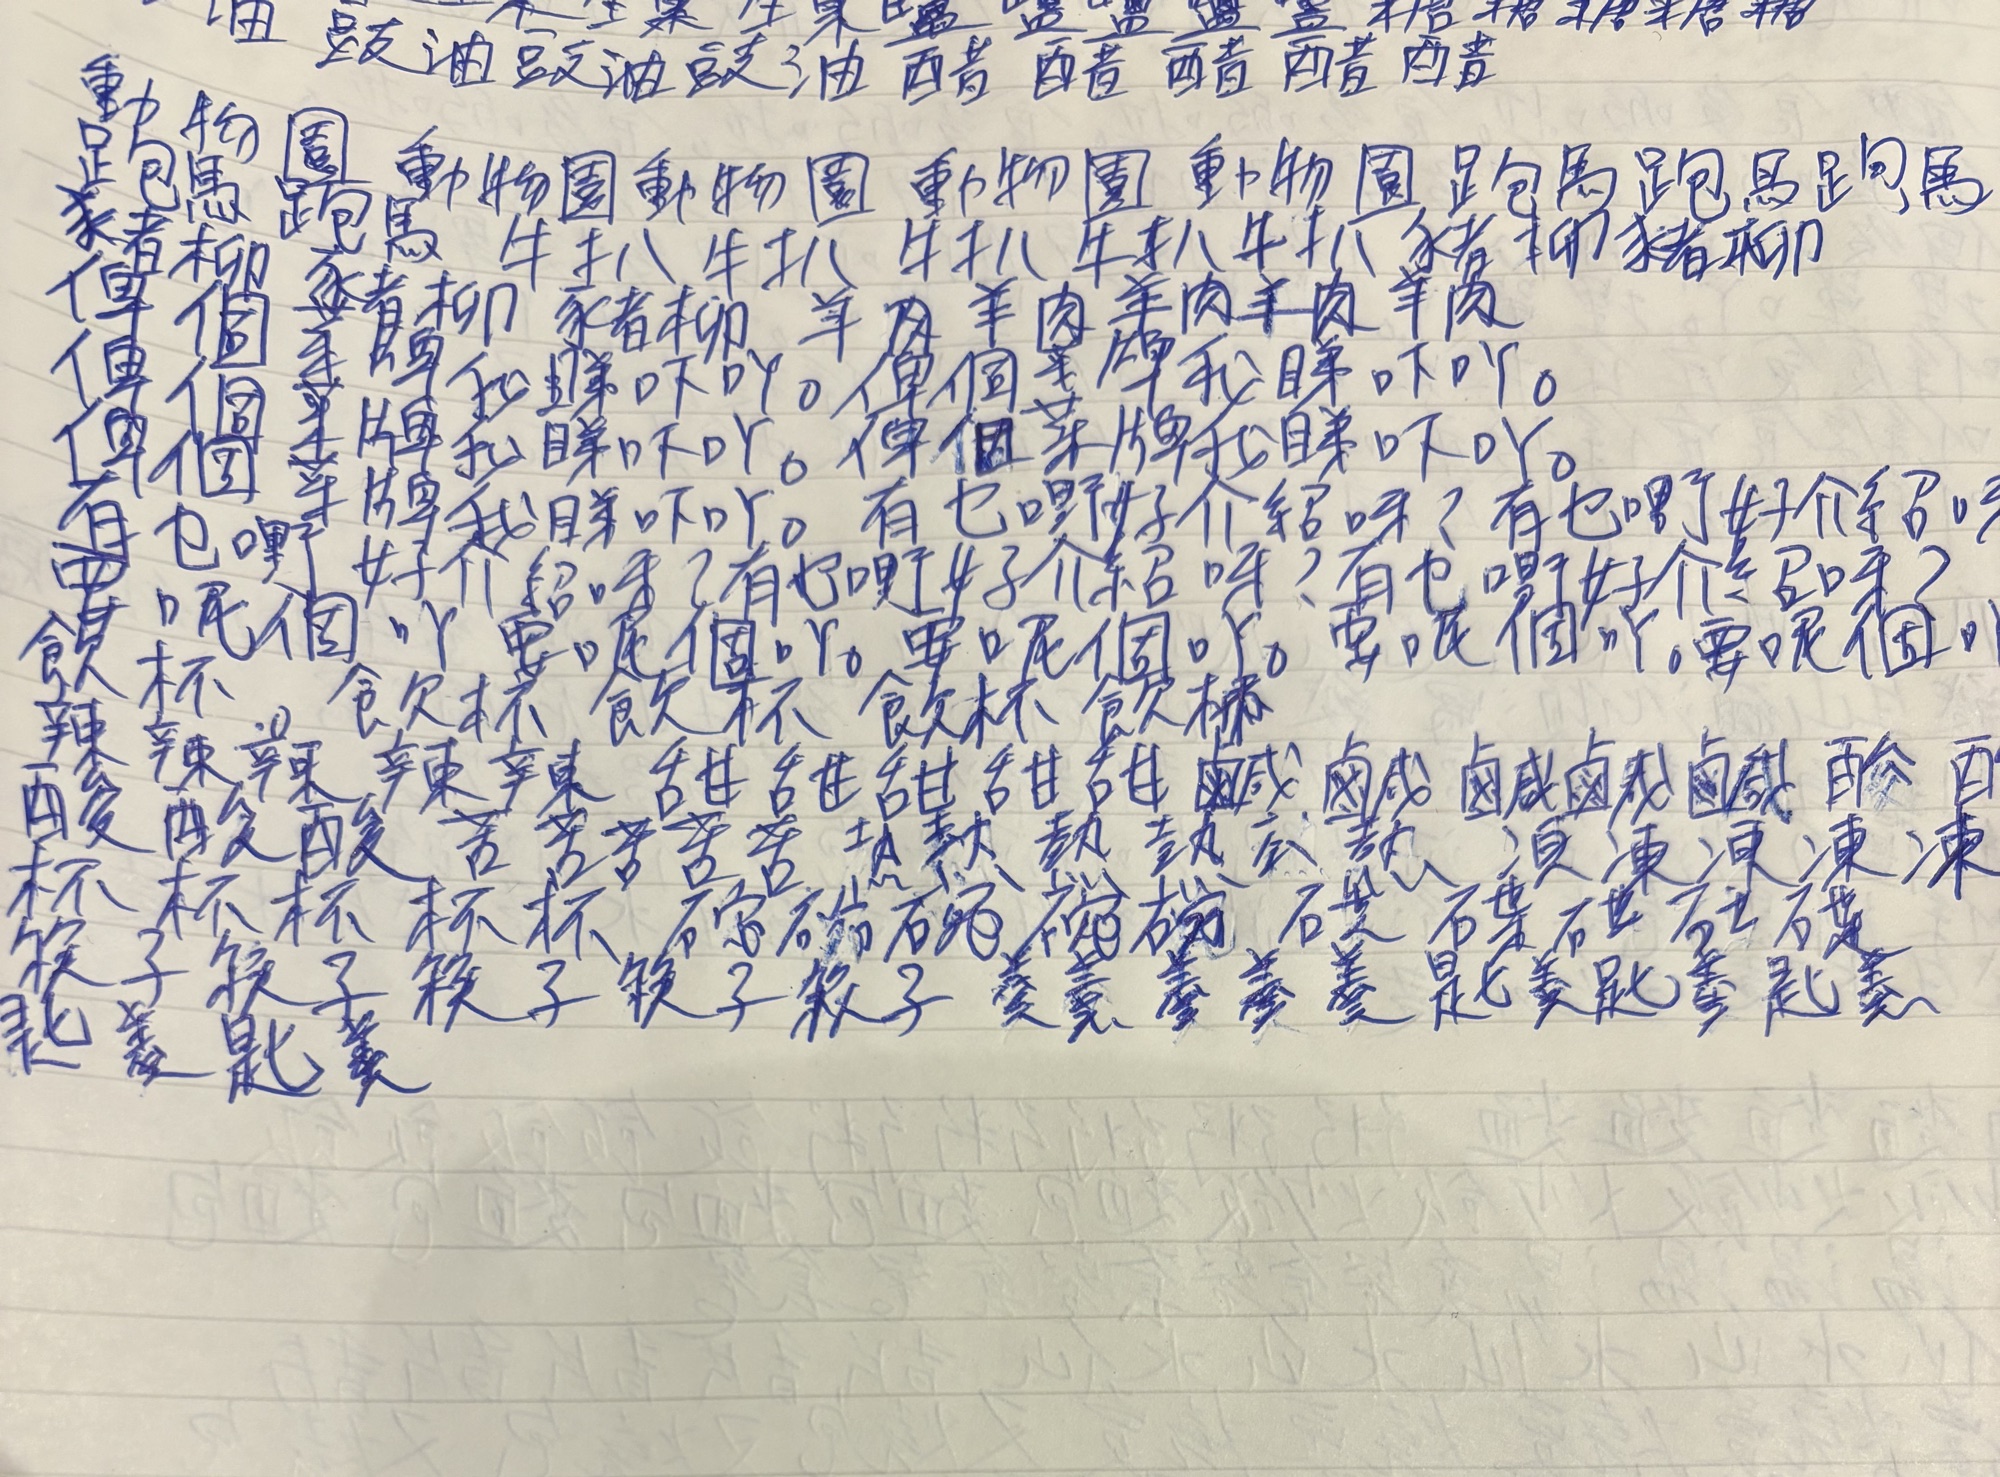 油 豉油豉油豉油 醋 醋 醋 醋 醋
動物園 動物園動物園 動物園 動物園 跑馬跑馬跑馬
跑馬 跑馬 牛扒 牛扒 牛扒 牛扒 牛扒 豬柳豬柳
豬柳 豬柳 豬柳 羊肉 羊肉 羊肉 羊肉 羊肉
俾個菜牌我睇吓吖。俾個菜牌我睇吓吖。
俾個菜牌我睇吓吖。俾個菜牌我睇吓吖。
俾個菜牌我睇吓吖。有乜嘢好介紹呀？有乜嘢好介紹呀
有乜嘢好介紹呀？有乜嘢好介紹呀？有乜嘢好介紹呀？
要呢個吖 要呢個吖。要呢個吖。要呢個吖。要呢個吖
飲杯 飲杯 飲杯 飲杯 飲杯
辣 辣 辣 辣 辣 甜 甜 甜 甜 甜 鹹 鹹 鹹 鹹 鹹
酸 酸 酸 苦 苦 苦 苦 苦 熱 熱 熱 熱 熱 凍 凍 凍 凍 凍
杯 杯 杯 杯 杯 碗 碗 碗 碗 碟 碟 碟 碟 碟
筷子 筷子 筷子 筷子 筷子 羹 羹 羹 羹 羹 匙羹匙羹匙羹
匙羹匙羹